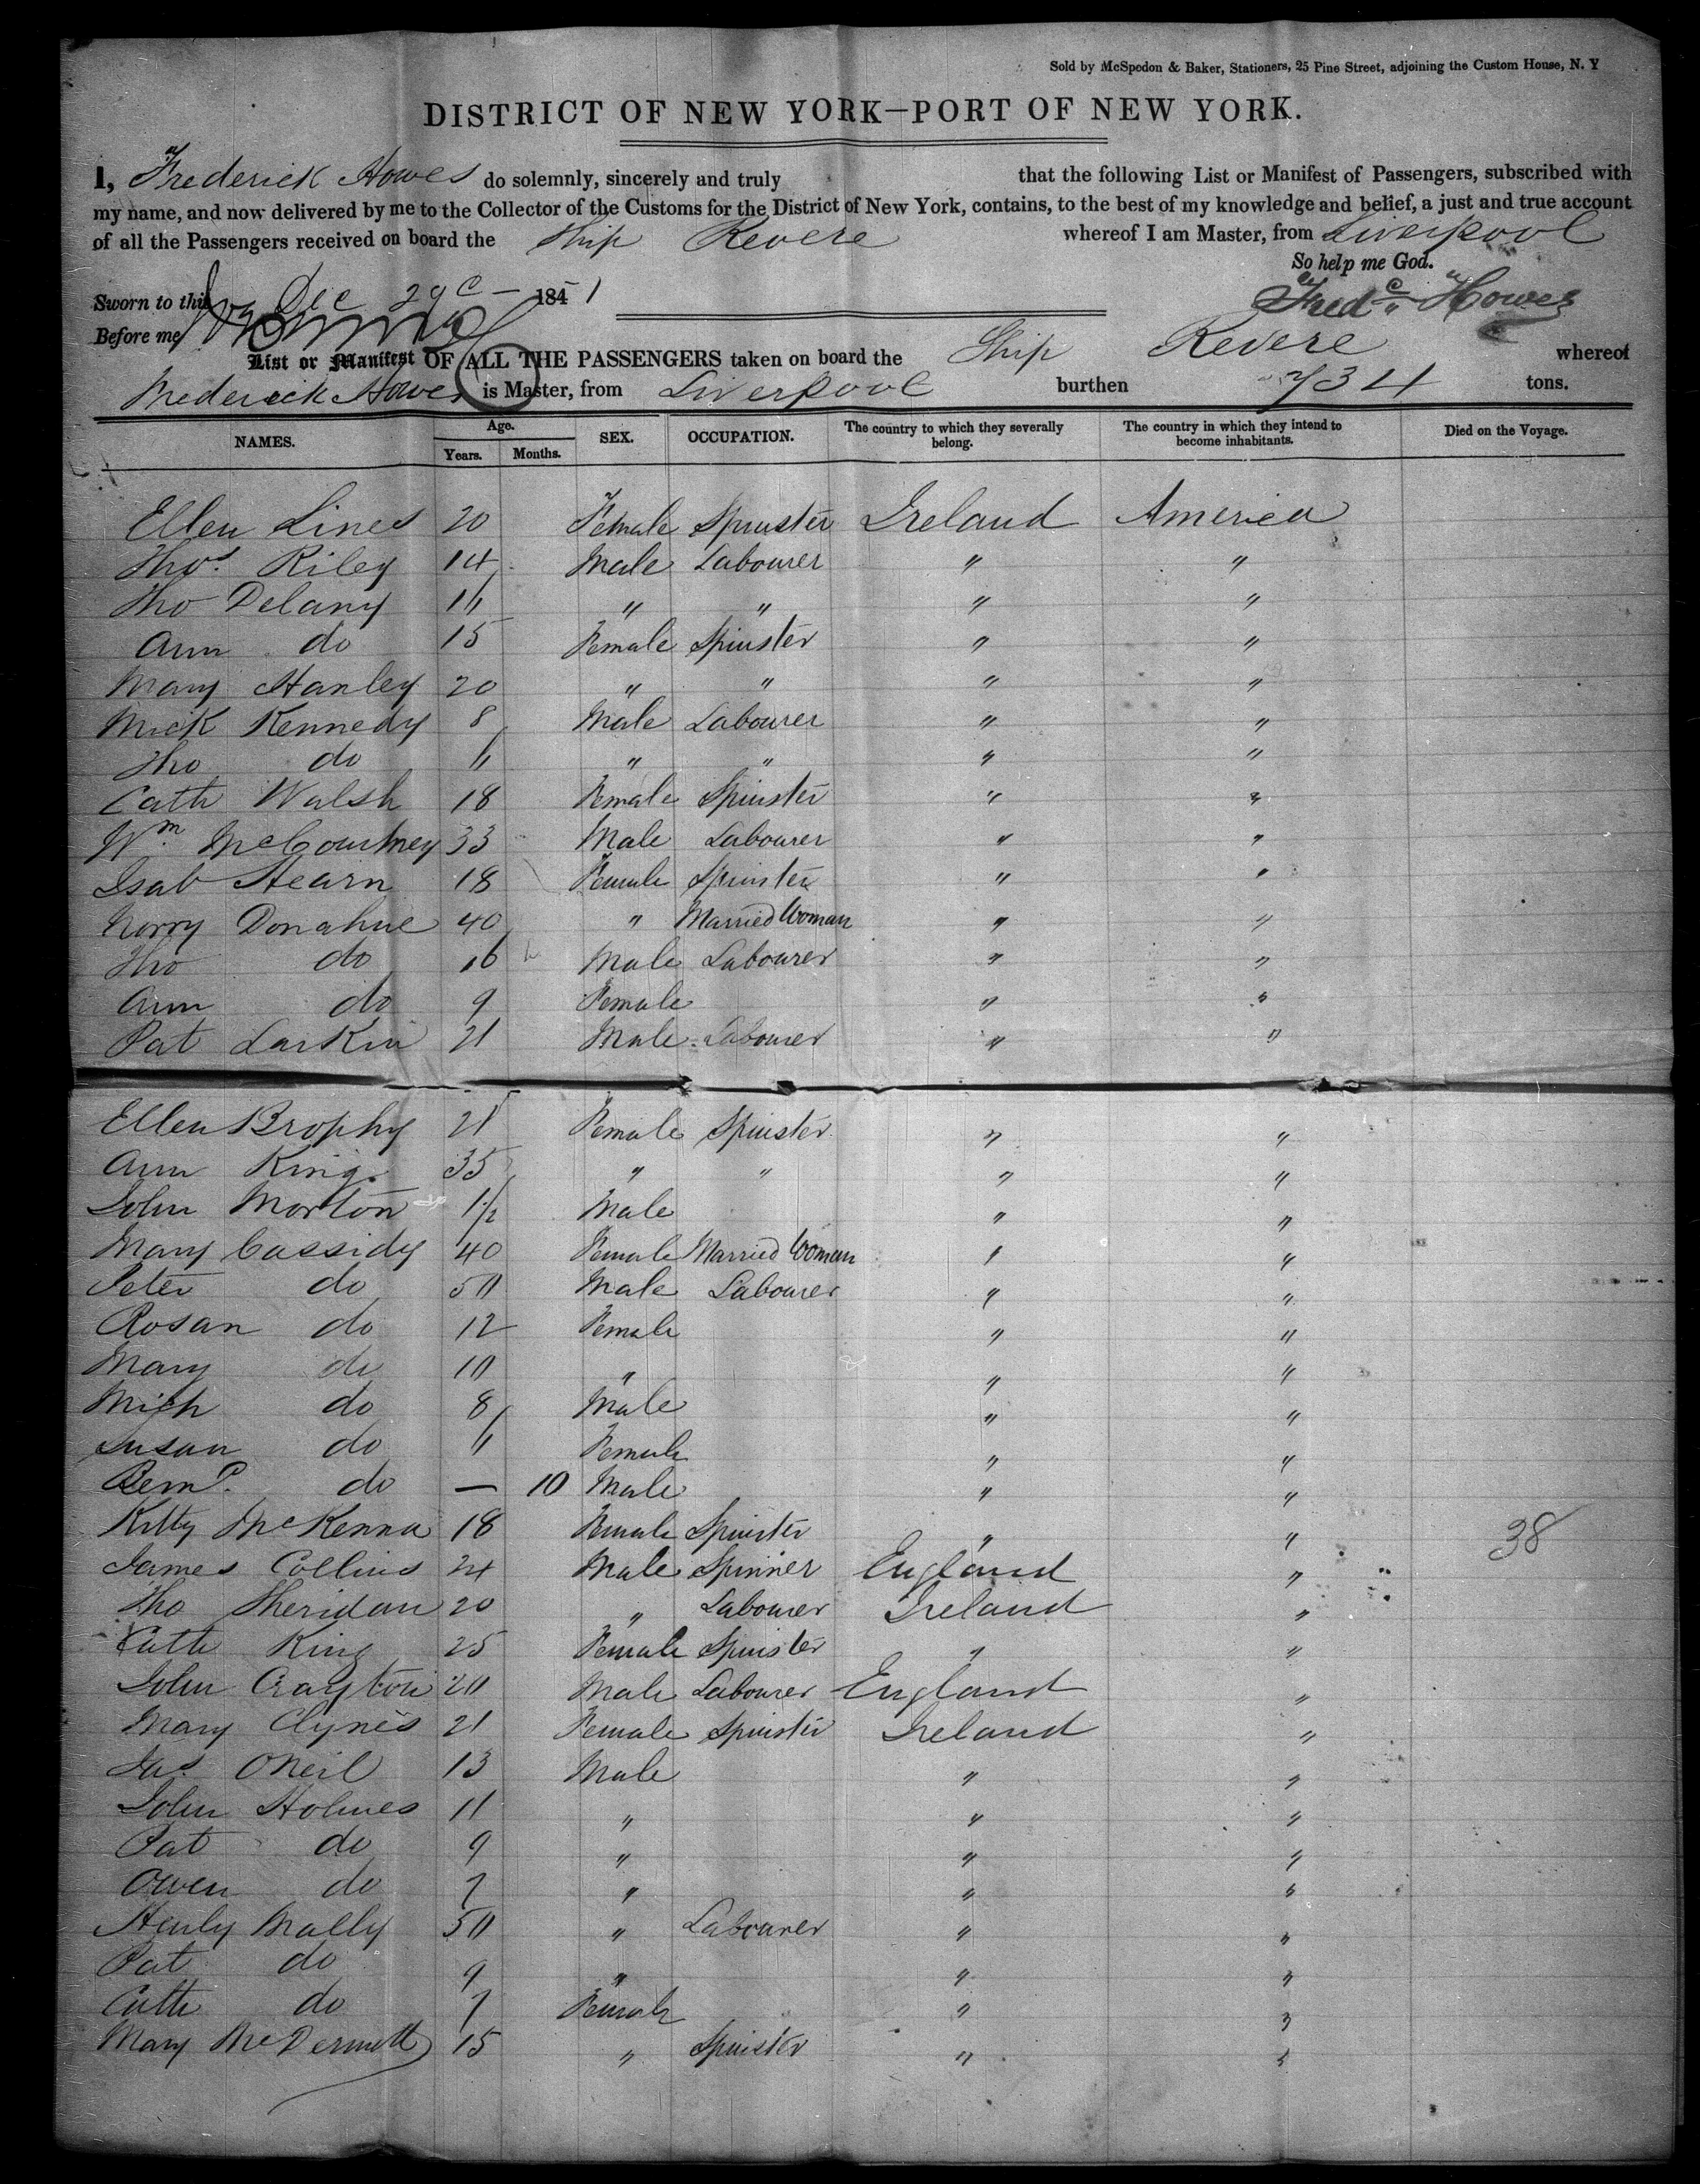 Sold by McSpedon & Baker, Stationers, 25 Pine Street, adjoining the Custom House, N. Y
DISTRICT OF NEW YORK—PORT OF NEW YORK.
I, Frederick Howes do solemnly, sincerely and truly that the following List or Manifest of Passengers, subscribed with
my name, and now delivered by me to the Collector of the Customs for the District of New York, contains, to the best of my knowledge and belief, a just and true account
of all the Passengers received on board the Ship Revere whereof I am Master, from Liverpool
So help me God.
Sworn to this Dec 29 1851
Fredc Howes
Before me
List or Manifest OF ALL THE PASSENGERS taken on board the Ship Revere whereof
Frederick Howes is Master, from Liverpool burthen 734 tons.
NAMES. Age. Years. Months. SEX. OCCUPATION. The country to which they severally belong. The country in which they intend to become inhabitants. Died on the Voyage.
Ellen Lines 20 Female Spinster Ireland America
Thos. Riley 14 Male Labourer " "
Tho Delany 16 " " " "
Ann do 15 Female Spinster " "
Mary Hanley 20 " " " "
Mick Kennedy 8 Male Labourer " "
Tho do 6 " " " "
Cath Walsh 18 Female Spinster " "
Wm. McCourtney 33 Male Labourer " "
Isab Hearn 18 Female Spinster " "
Norry Donahue 40 " Married Woman " "
Tho do 16 Male Labourer " "
Ann do 9 Female " "
Pat Larkin 21 Male Labourer " "
Ellen Brophy 21 Female Spinster " "
Ann King 35 " " " "
John Morton 1½ Male " "
Mary Cassidy 40 Female Married Woman " "
Peter do 50 Male Labourer " "
Rosan do 12 Female " "
Mary do 10 " " "
Mich do 8 Male " "
Susan do 6 Female " "
do — 10 Male " "
Kitty McKenna 18 Female Spinster " " 38
James Collins 24 Male Spinner England "
Tho Sheridan 20 " Labourer Ireland "
Cath King 25 Female Spinster " "
John Crayton 20 Male Labourer England "
Mary Clynes 21 Female Spinster Ireland "
Jas ONeil 13 Male " "
John Holmes 11 " " "
Pat do 9 " " "
Owen do 7 " " "
Henly Mally 50 " Labourer " "
Pat do 9 " " "
Cath do 7 Female " "
Mary McDermott 15 " Spinster " "